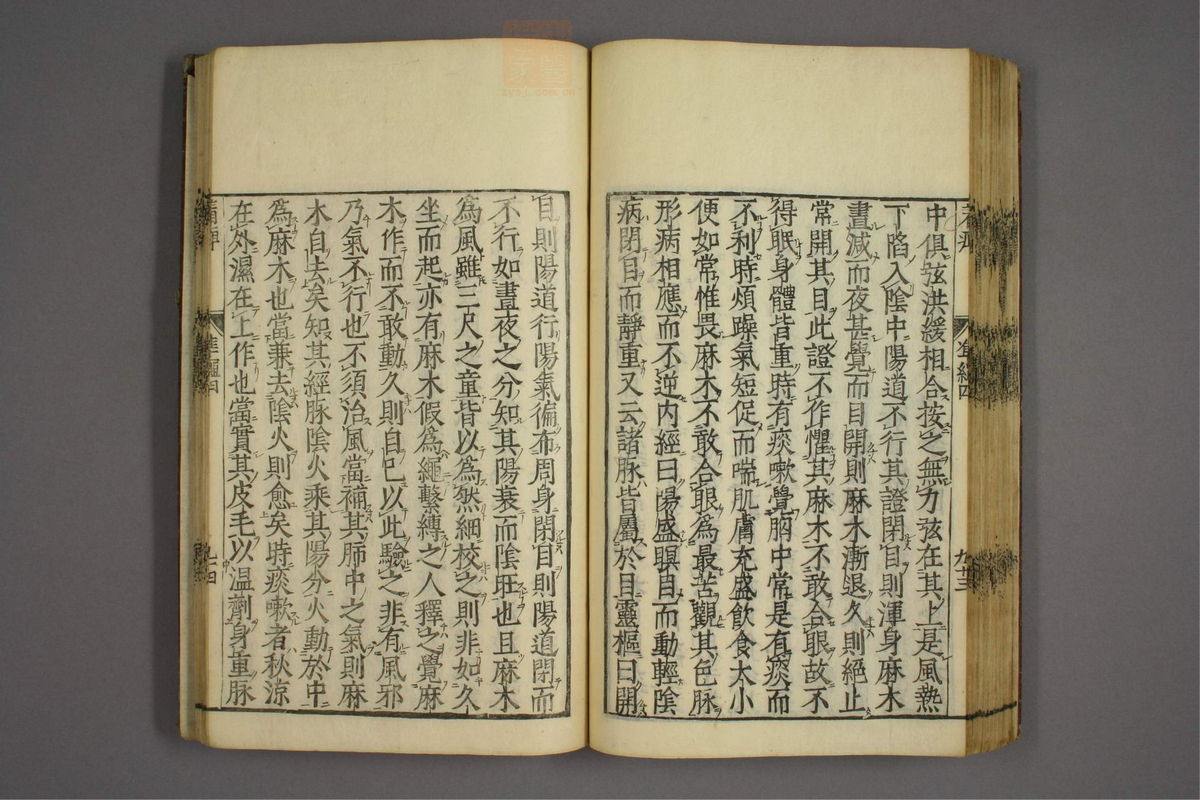 中俱弦洪緩相合按之無力弦在其上是風熱
下陷入陰中陽道不行其證閉目則渾身麻木
晝減而夜甚覺而目開則麻木漸退久則絕止
常開其目此證不作懼其麻木不敢合眼故不
得眠身體皆重時有痰嗽覺胸中常是有痰而
不利時煩躁氣短促而喘肌膚充盛飲食大小
便如常惟畏麻木不敢合眼為最苦觀其色脉
形病相應而不逆内經曰陽盛瞑目而動輕陰
病閉目而靜重又云諸脉皆屬於目靈樞曰開
九十三
目則陽道行陽氣徧布周身閉目則陽道閉而
不行如晝夜之分知其陽衰而陰旺也且麻木
為風雖三尺之童皆以為然細校之則非如久
坐而起亦有麻木假為繩繫縛之人釋之覺麻
木作而不敢動久則自已以此驗之非有風邪
乃氣不行也不須治風當補其肺中之氣則麻
木自去矣知其經脉陰火乘其陽分火動於中
為麻木也當兼去陰火則愈矣時痰嗽者秋涼
在外濕在上作也當實其皮毛以温劑身重脉
zysj.com.cn